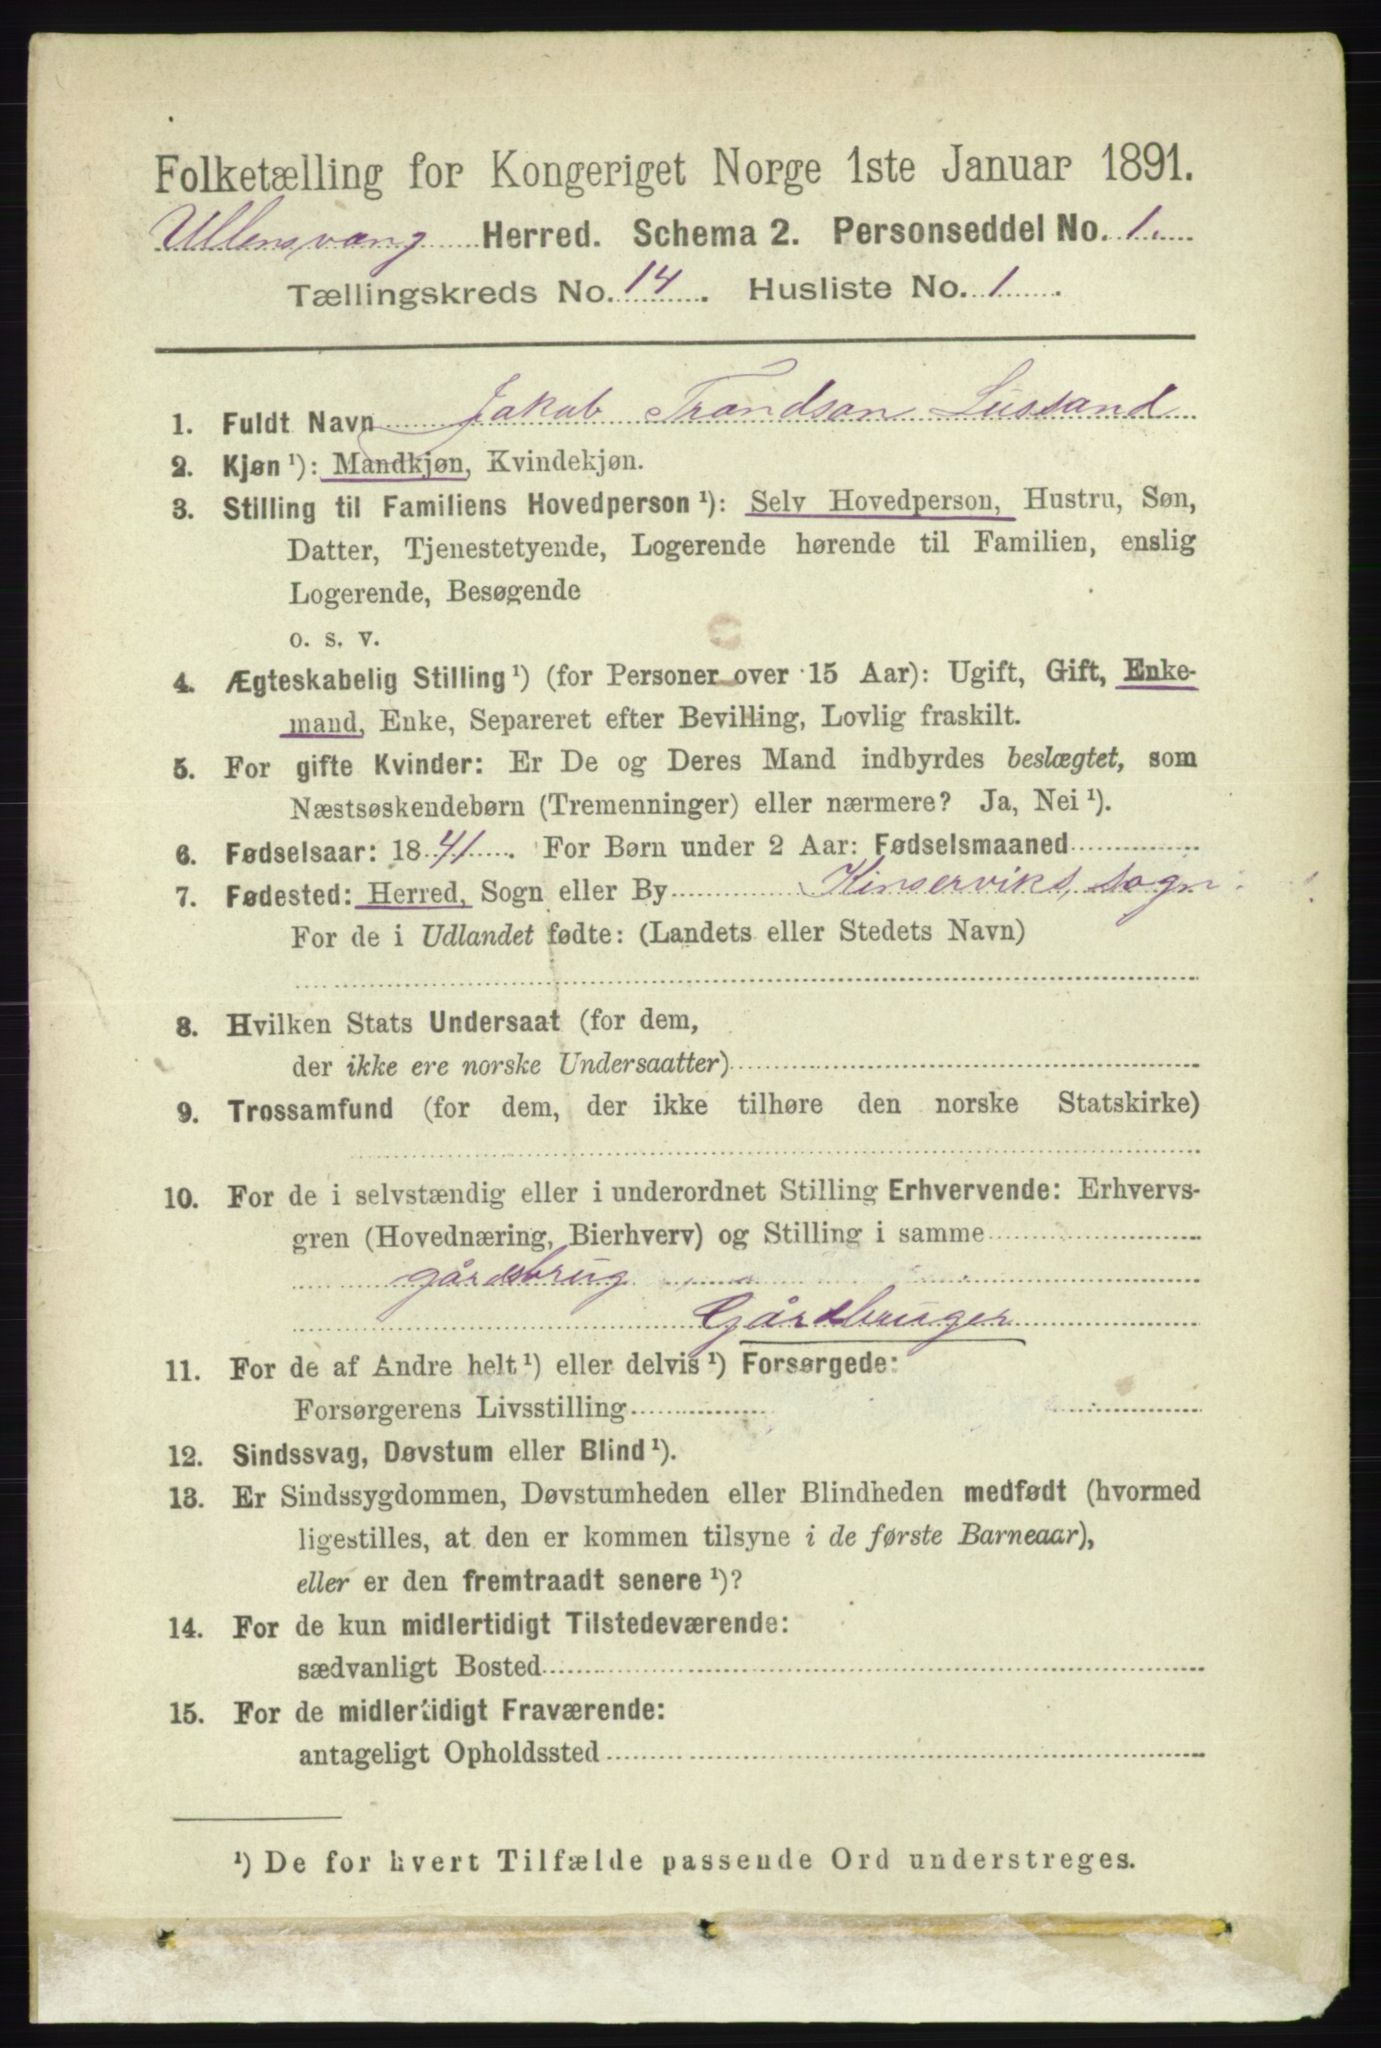 Folketælling for Kongeriget Norge 1ste Januar 1891.
Ullensvang Herred. Schema 2. Personseddel No. 1.
Tællingskreds No. 14. Husliste No. 1.
1. Fuldt Navn Jakob Trondson Lussand
2. Kjøn¹): Mandkjøn, Kvindekjøn.
3. Stilling til Familiens Hovedperson¹): Selv Hovedperson, Hustru, Søn,
Datter, Tjenestetyende, Logerende hørende til Familien, enslig
Logerende, Besøgende
o. s. v.
4. Ægteskabelig Stilling¹) (for Personer over 15 Aar): Ugift, Gift, Enke-
mand, Enke, Separeret efter Bevilling, Lovlig fraskilt.
5. For gifte Kvinder: Er De og Deres Mand indbyrdes beslægtet, som
Næstsøskendebørn (Tremenninger) eller nærmere? Ja, Nei¹).
6. Fødselsaar: 1841. For Børn under 2 Aar: Fødselsmaaned
7. Fødested: Herred, Sogn eller By Kinserviks sogn
For de i Udlandet fødte: (Landets eller Stedets Navn)
8. Hvilken Stats Undersaat (for dem,
der ikke ere norske Undersaatter)
9. Trossamfund (for dem, der ikke tilhøre den norske Statskirke)
10. For de i selvstændig eller i underordnet Stilling Erhvervende: Erhvervs-
gren (Hovednæring, Bierhverv) og Stilling i samme
gårdsbrug
Gårdbruger
11. For de af Andre helt¹) eller delvis¹) Forsørgede:
Forsørgerens Livsstilling
12. Sindssvag, Døvstum eller Blind¹).
13. Er Sindssygdommen, Døvstumheden eller Blindheden medfødt (hvormed
ligestilles, at den er kommen tilsyne i de første Barneaar),
eller er den fremtraadt senere¹)?
14. For de kun midlertidigt Tilstedeværende:
sædvanligt Bosted
15. For de midlertidigt Fraværende:
antageligt Opholdssted
¹) De for hvert Tilfælde passende Ord understreges.